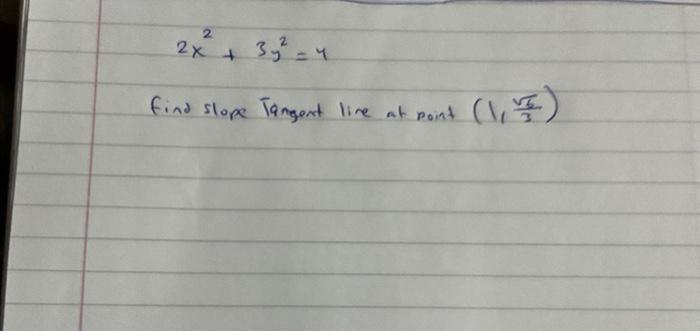 2x² + 3y² = 4
find slope Tangent line at point (1, √6/3)